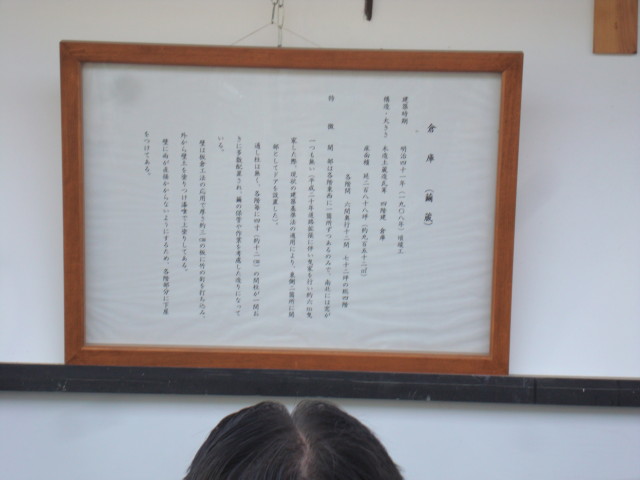 倉庫（繭蔵）
建築時期　明治四十一年（一九〇八年）頃竣工
構造・大きさ　木造土蔵造瓦葺　四階建　倉庫
床面積　延二百八十八坪（約九百五十二㎡）
各階間　六間奥行十二間　七十二坪の総四階
特徴　開部は各階東西に一箇所ずつあるのみで、南北には窓が
一つも無い（平成二十年道路拡張に伴い曳家を行い約六m曳
家した際、現状の建築基準法の適用により、東側二箇所に開
館としてドアを設置した）。
通し柱は無く、各階毎に四寸（約十二㎝）の間柱が一間お
きに多数配置され、繭の保管や作業を考慮した造りになって
いる。
壁は板倉工法の応用で厚さ約三㎝の板に竹の釘を打ち込み、
外から壁土を塗りつけ漆喰で上塗りしてある。
壁に雨が直接かからないようにするため、各階部分に下屋
をつけてある。